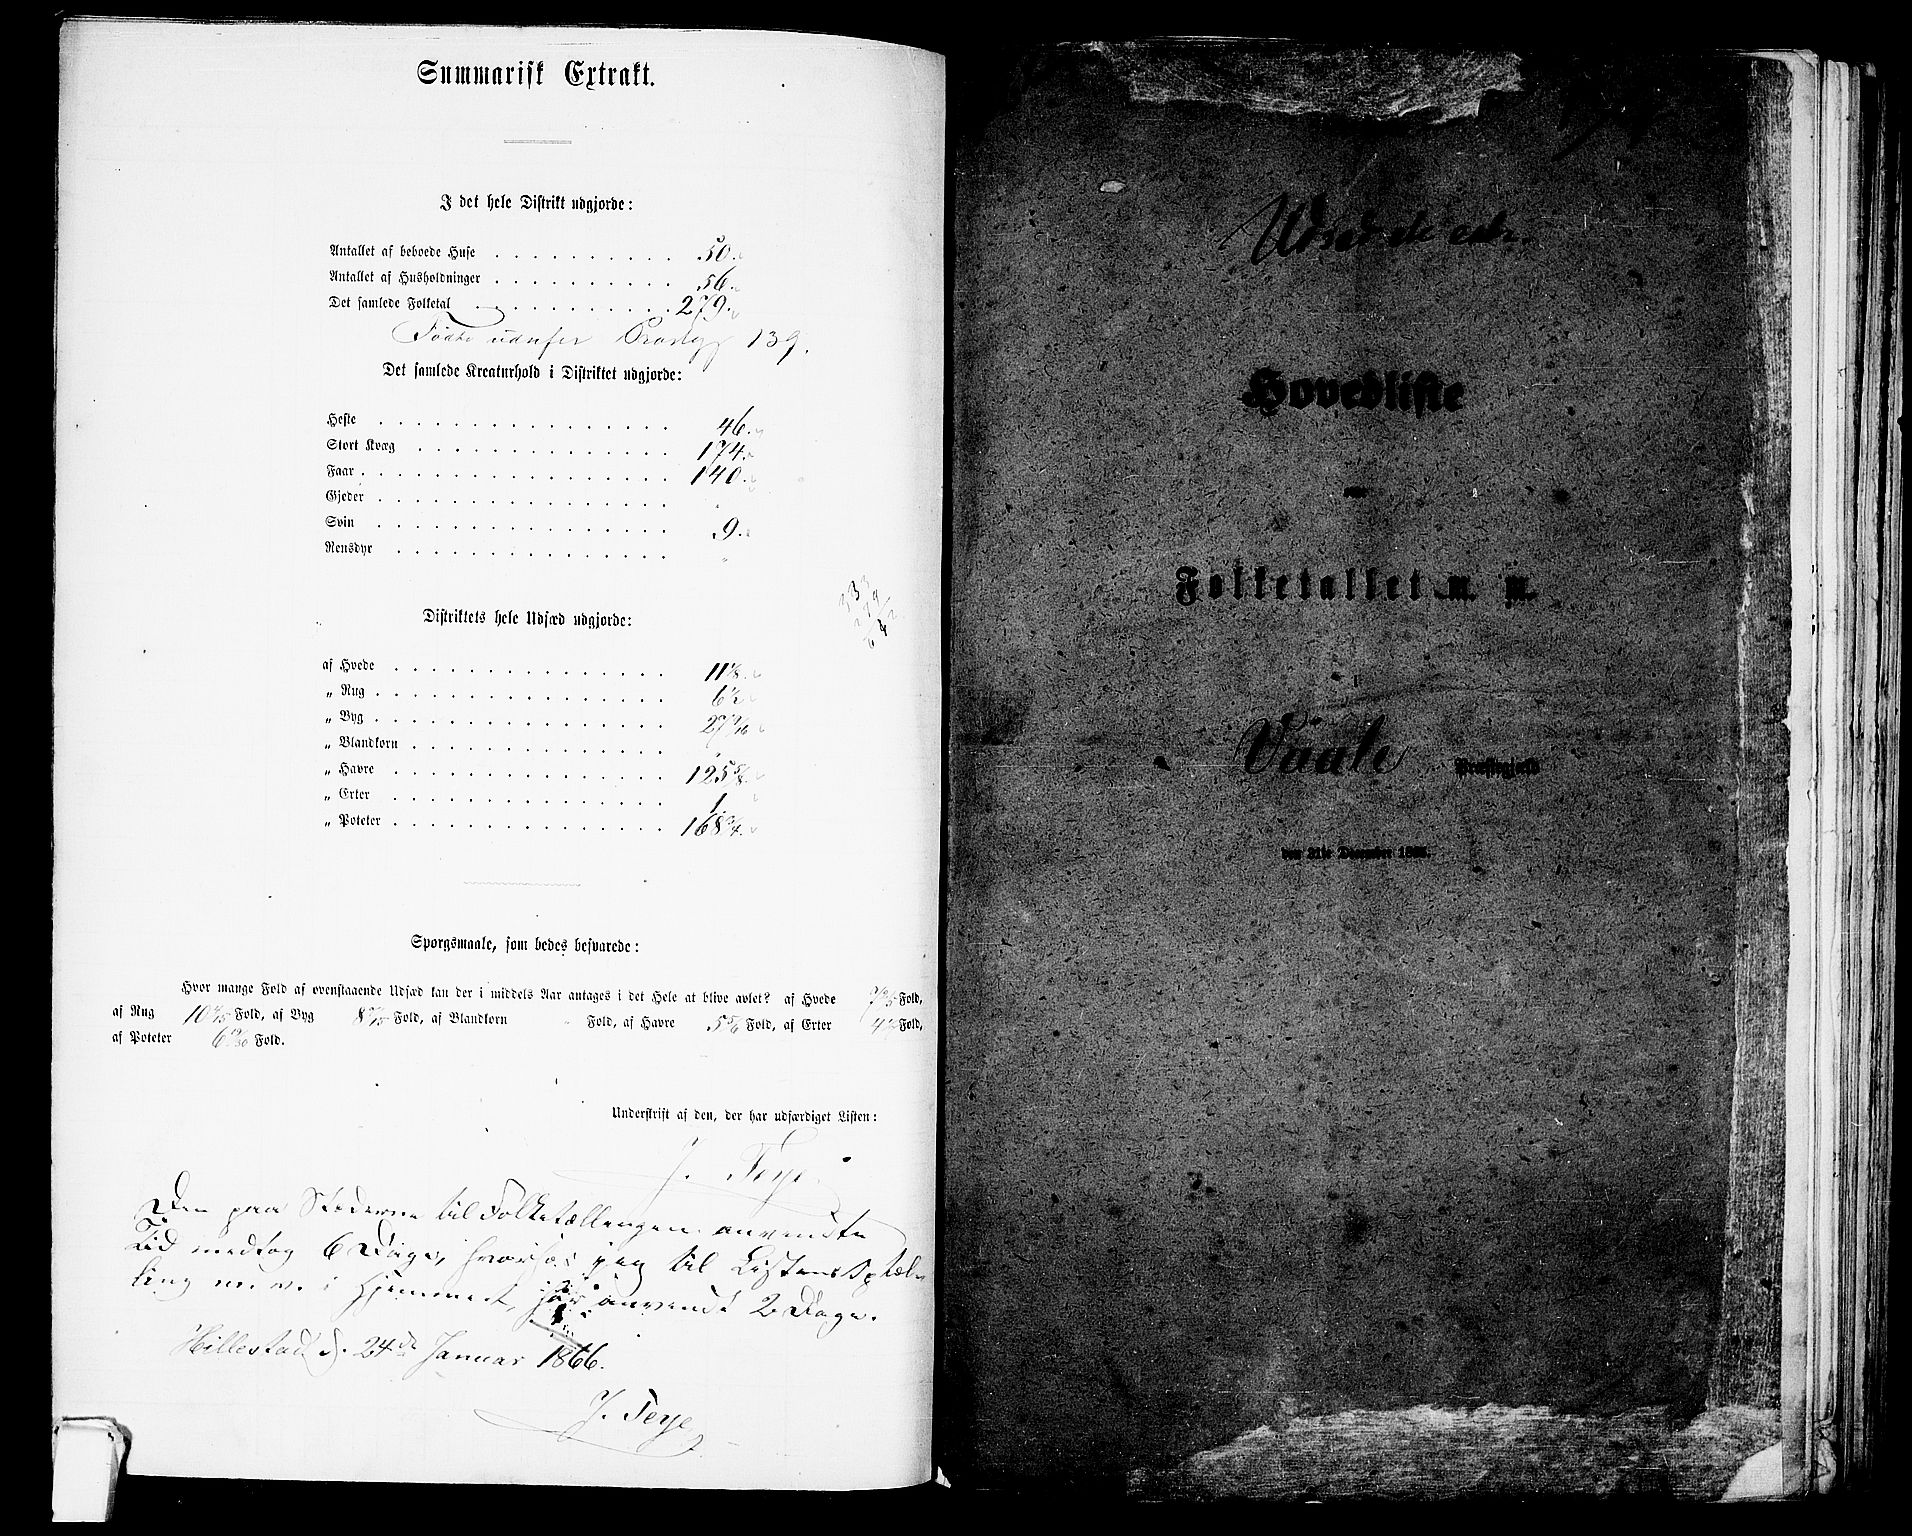 Summarisk Extrakt.
I det hele Distrikt udgjorde:
Antallet af beboede Huse . . . . . . . . . . 50.
Antallet af Husholdninger . . . . . . . . . . 56.
Det samlede Folketal . . . . . . . . . . 279.
Fødte udenfor 139.
Det samlede Kreaturhold i Distriktet udgjorde:
Heste . . . . . . . . . . . . . . . . 46.
Stort Kvæg . . . . . . . . . . . . . . 174.
Faar . . . . . . . . . . . . . . . . . 140.
Gjeder . . . . . . . . . . . . . . . . "
Svin . . . . . . . . . . . . . . . . 9.
Rensdyr . . . . . . . . . . . . . . . "
Distriktets hele Udsæd udgjorde:
af Hvede . . . . . . . . . . . . . . . 11 1/8.
„ Rug . . . . . . . . . . . . . . . . 6 1/2
„ Byg . . . . . . . . . . . . . . . . 27
„ Blandkorn . . . . . . . . . . . . . "
„ Havre . . . . . . . . . . . . . . . 125 5/8.
„ Erter . . . . . . . . . . . . . . . 1.
„ Poteter . . . . . . . . . . . . . . . 168 3/4.
Spørgsmaale, som bedes besvarede:
Hvor mange Fold af ovenstaaende Udsæd kan der i middels Aar antages i det Hele at blive avlet? af Hvede 7 Fold,
af Rug 10 Fold, af Byg 8 Fold, af Blandkorn " Fold, af Havre 5 5/6 Fold, af Erter 4 Fold,
af Poteter 6 Fold.
Underskrift af den, der har udfærdiget Listen:
J. Feye.
Den paa Stederne til Folketællingen anvendte
Tid medtog 6 Dage, hvorfor jeg til Listens
i Hjemmet, har anvendt 2 Dage.
Hillestad d. 24de Januar 1866.
J. Feye
Hovedliste
over
Folketallet m. m.
i
Vaale Præstegjeld
den 31te December 1865.